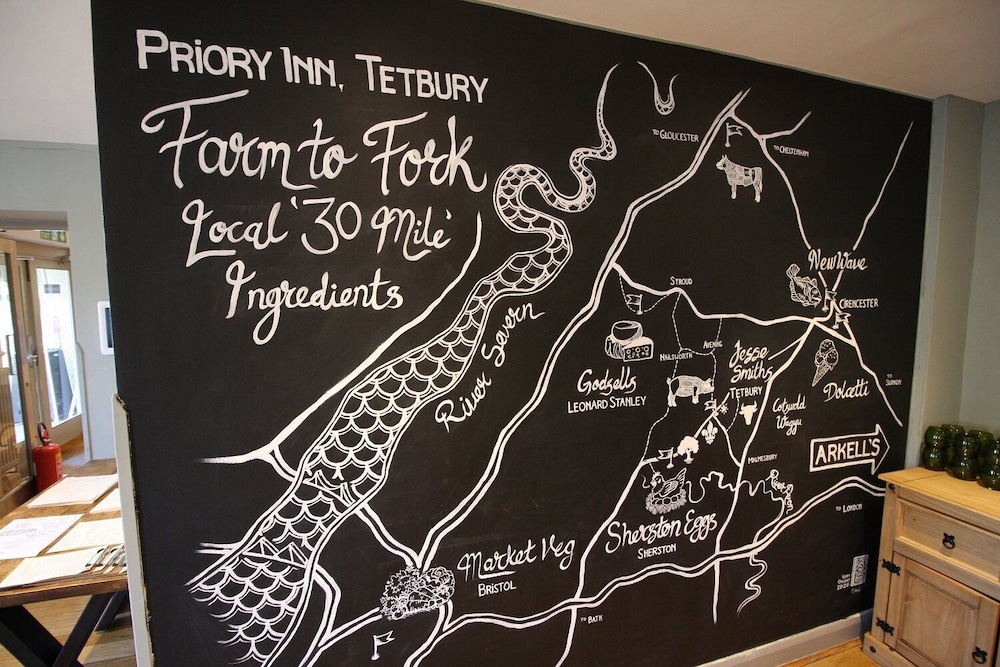 PRIORY INN, TETBURY
Farm to Fork
Local '30 Mile'
Ingredients
TO GLOUCESTER
TO CHELTENHAM
New Wave
CIRENCESTER
STROUD
River Severn
AVENING
NAILSWORTH
Jesse
Smiths
TETBURY
Godsells
LEONARD STANLEY
Dolcetti
TO
SWINDON
Cotswold
Wagyu
ARKELL'S
MALMESBURY
TO LONDON
Sherston Eggs
SHERSTON
Market Veg
BRISTOL
TO BATH